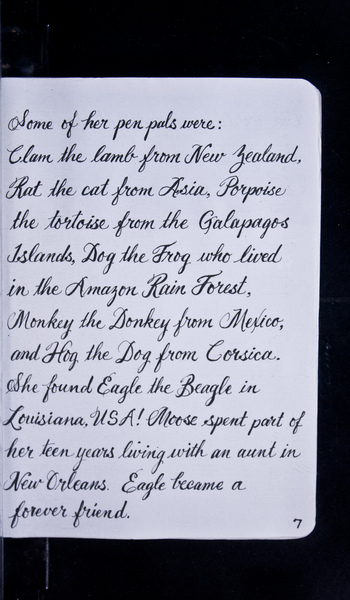 Some of her pen pals were:
Clam the lamb from New Zealand,
Rat the cat from Asia, Porpoise
the tortoise from the Galapagos
Islands, Dog the Frog who lived
in the Amazon Rain Forest,
Monkey the Donkey from Mexico,
and Hog the Dog from Corsica.
She found Eagle the Beagle in
Louisiana, USA! Moose spent part of
her teen years living with an aunt in
New Orleans. Eagle became a
forever friend.
7